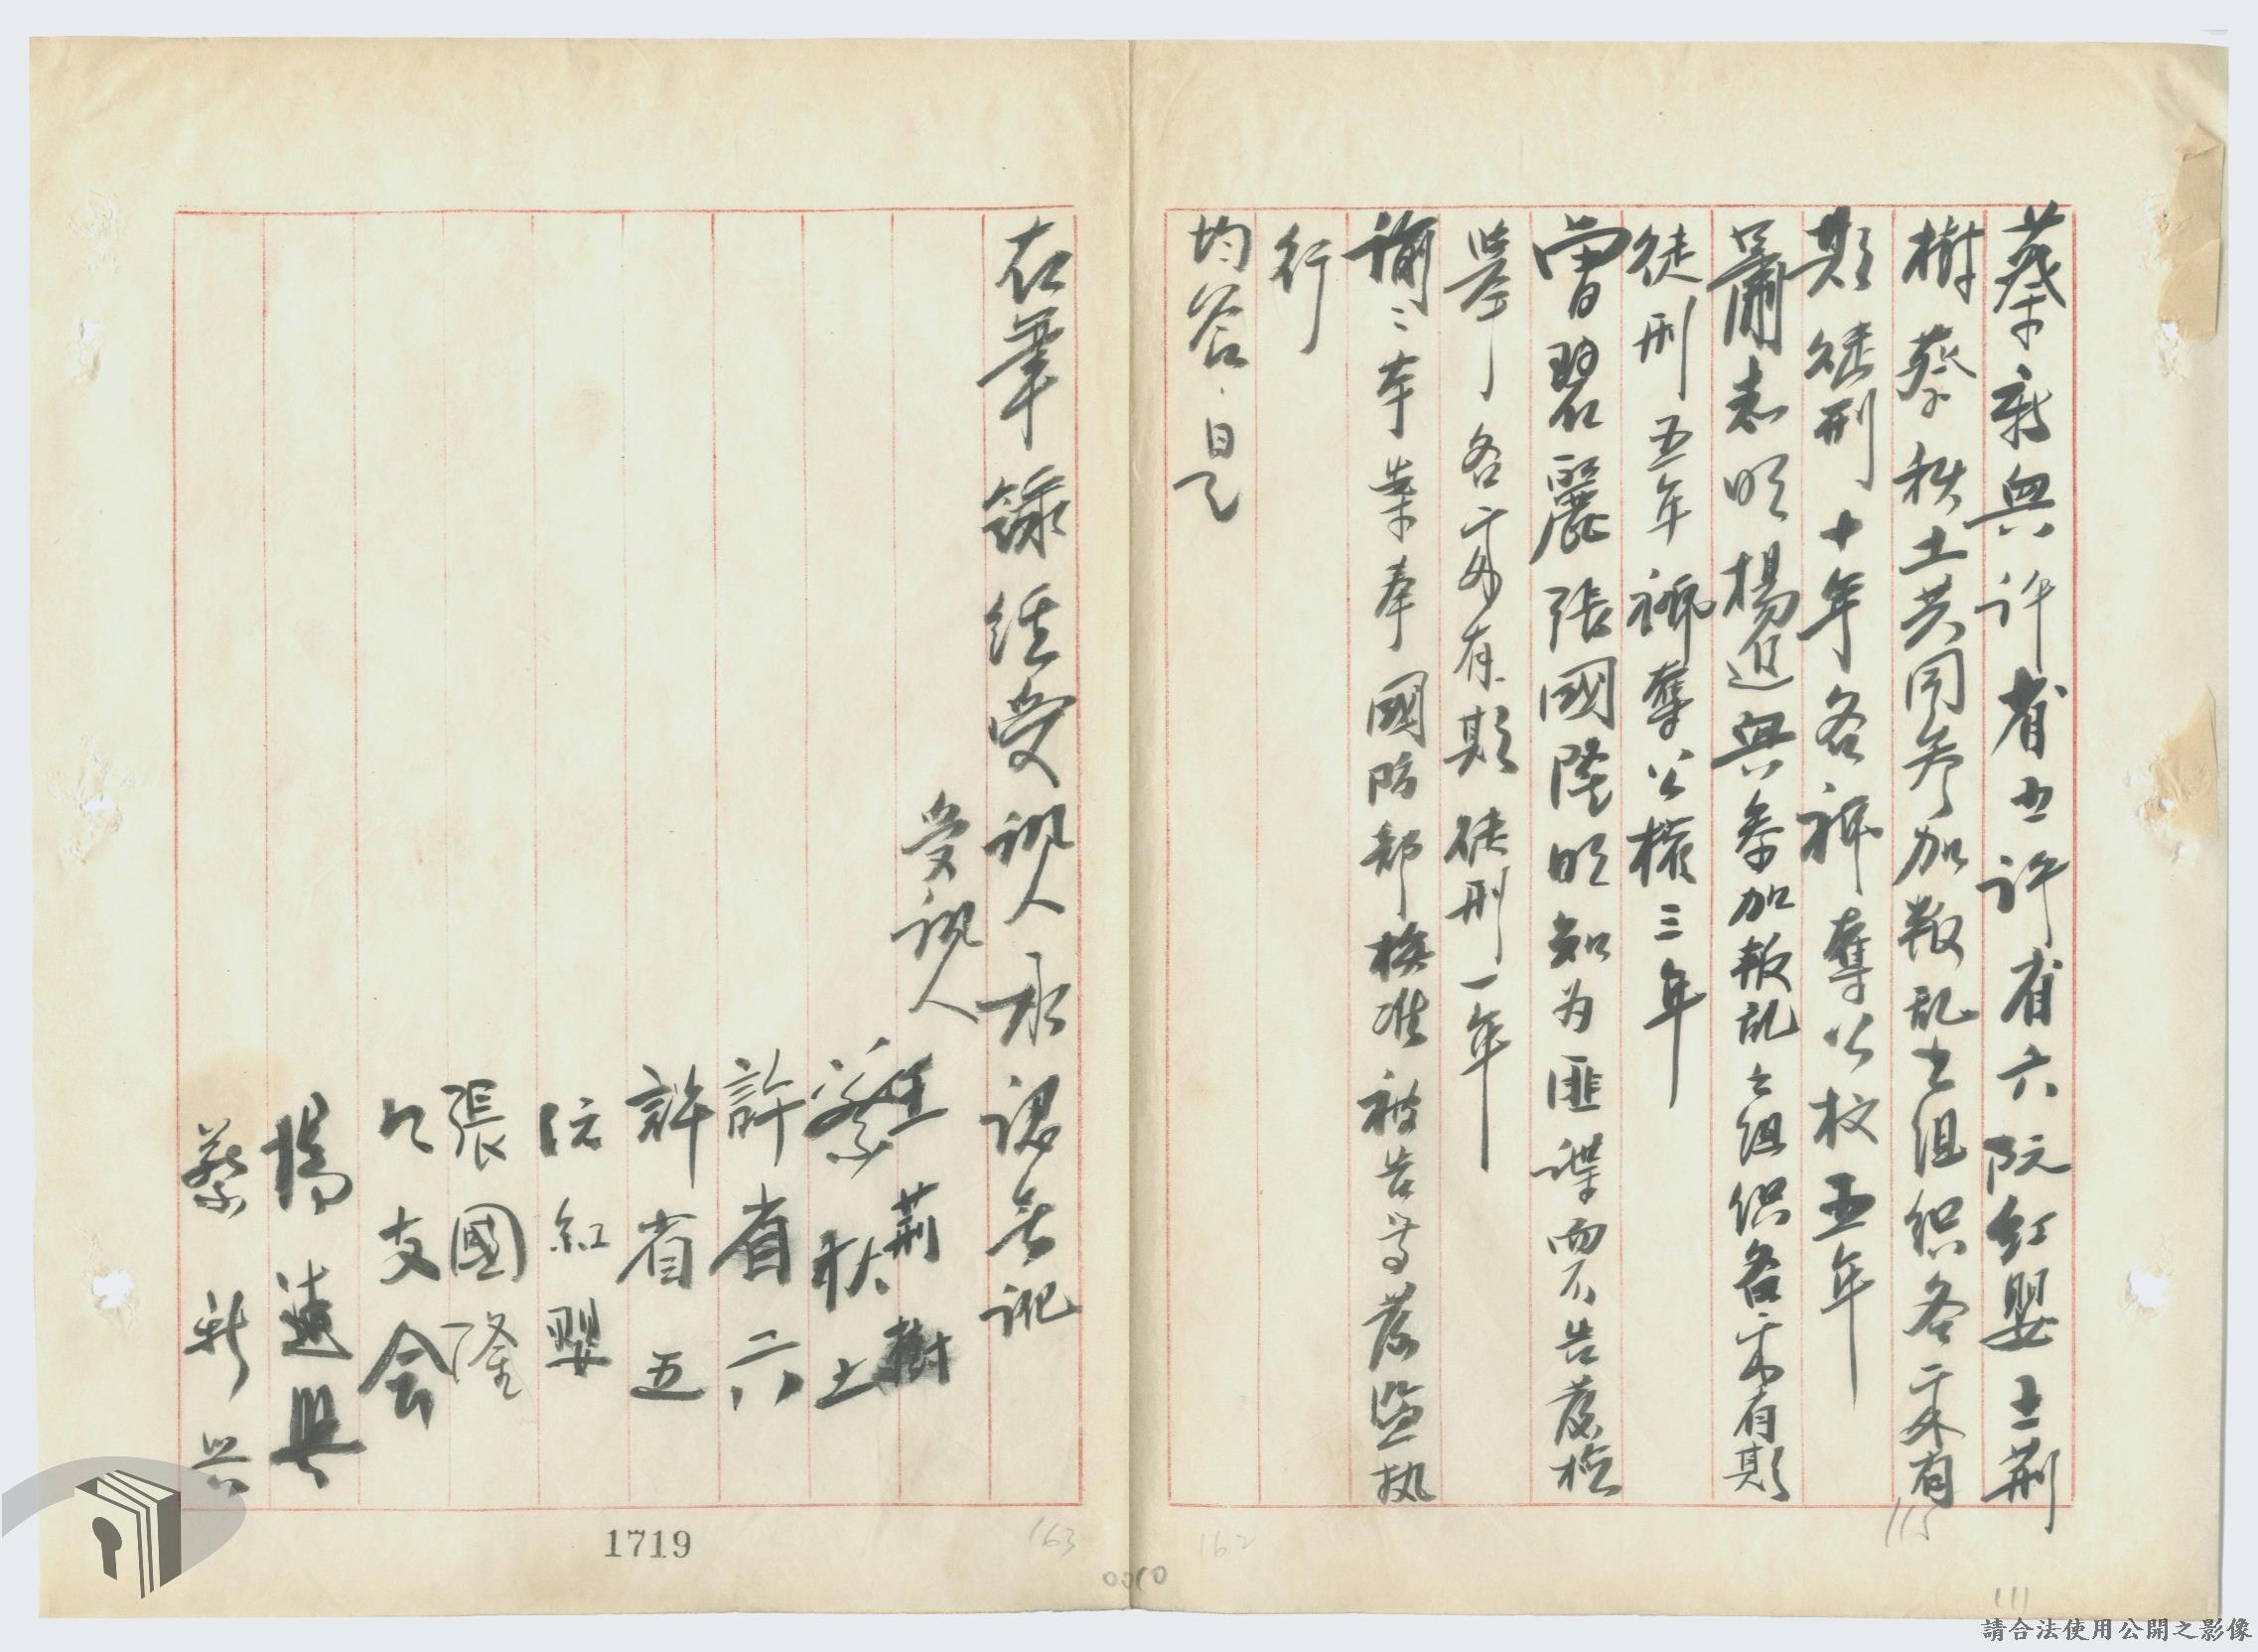 蔡新興許省五許省六阮紅嬰王荊
樹蔡秋土共同參加叛乱之组织各處有
期徒刑十年各褫奪公权五年
蕭志明楊進興參加叛乱之组织各處有期
徒刑五年褫奪公权三年
曾碧麗張國隆明知为匪諜而不告發检
舉各處有期徒刑一年
諭:本案奉國防部核准被告等發监执
行
均答:是
右筆録经受訊人承認無訛
受訊人
王荊樹
蔡秋土
許省六
許省五
阮紅嬰
張國隆
支会
楊進興
蔡新兴
1719
163
162
115
111
請合法使用公開之影像